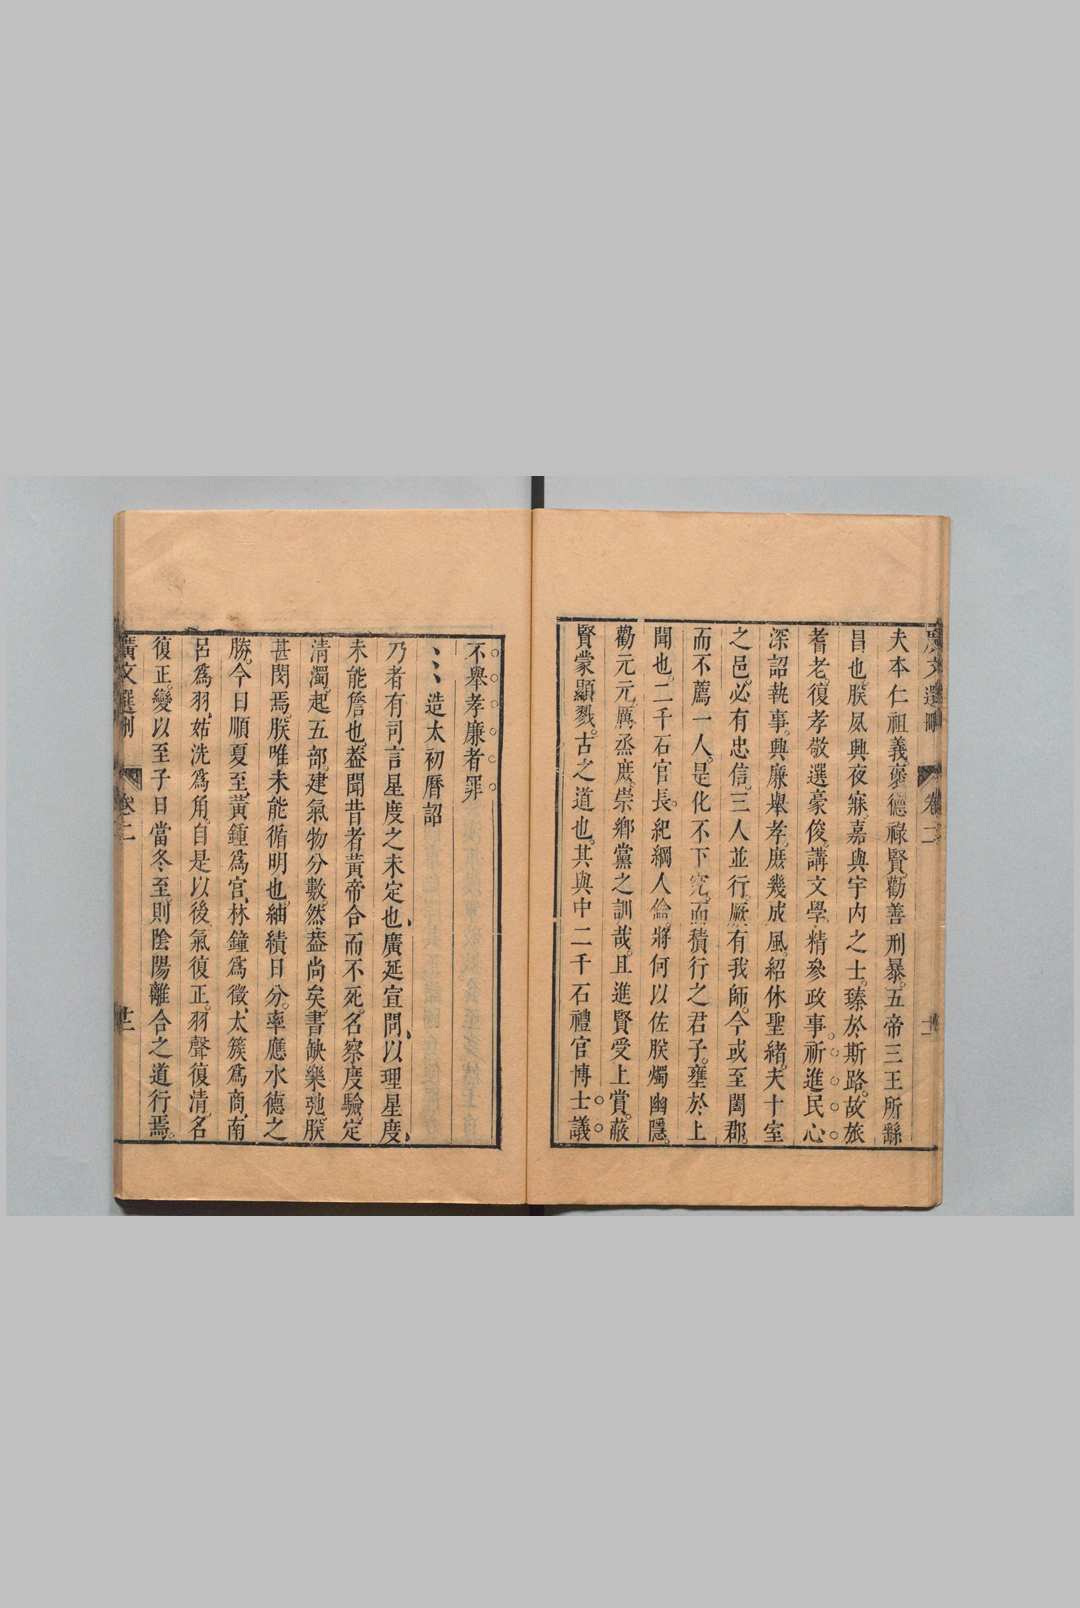 夫本仁祖義襃德祿賢勸善刑暴。五帝三王所繇
昌也。朕夙興夜寐嘉與宇內之士。臻於斯路。故旅
耆老。復孝敬選豪俊。講文學。稽參政事。祈進民心
深詔執事。興廉舉孝。庶幾成風。紹休聖緒。夫十室
之邑。必有忠信。三人並行。厥有我師。今或至闔郡。
而不薦一人。是化不下究。而積行之君子。壅於上
聞也。二千石官長。紀綱人倫。將何以佐朕燭幽隱。
勸元元。厲烝庶。崇鄉黨之訓哉。且進賢受上賞。蔽
賢蒙顯戮。古之道也。其與中二千石禮官博士議
不舉孝廉者罪
造太初曆詔
乃者有司言星度之未定也、廣延宣問、以理星度、
未能詹也。蓋聞昔者黃帝合而不死。名察度驗。定
清濁。起五部。建氣物分數。然蓋尚矣。書缺樂弛。朕
甚閔焉。朕唯未能循明也。紬績日分。率應水德之
勝。今日順夏至。黃鍾爲宮。林鐘爲徵。太簇爲商。南
呂爲羽。姑洗爲角。自是以後。氣復正。羽聲復清。名
復正。變以至子日當冬至。則陰陽離合之道行焉。
廣文選刪
卷二
廿二